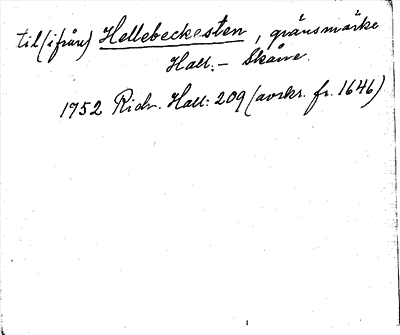 til (ifrån) Hellebeckesten, gränsmärke
Hall.– Skåne.
1752 Rich. Hall: 209 (avskr. fr. 1646)